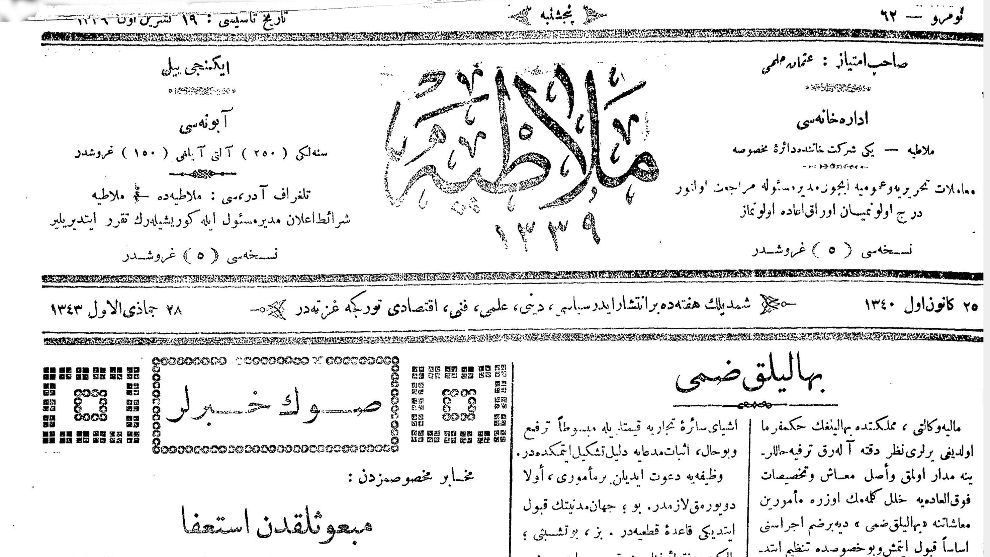 نومرو — ٦٢
پنجشنبه
تاریخ تاسیسی : ١٩ تشرین اول ١٣٣٩
صاحب امتیاز : عثمان حلمی
اداره خانه‌سی
ملاطیه — یکی شرکت خاننده دائرهٔ مخصوصه
معاملات تحریریه و عمومیه ایچون مدیر مسئوله مراجعت اولنور
درج اولونمیان اوراق اعاده اولونماز
نسخه‌سی ( ٥ ) غروشدر
ملاطیه
١٣٣٩
ایکنجی ییل
آبونه‌سی
سنه‌لکی ( ٢٥٠ ) آلتی آیلغی ( ١٥٠ ) غروشدر
تلغراف آدره‌سی : ملاطیه‌ده ملاطیه
شرائط اعلان مدیر مسئول ایله کوریشیله‌رك تقرر ایتدیریلیر
نسخه‌سی ( ٥ ) غروشدر
٢٥ کانون اول ١٣٤٠
شمدیلك هفته‌ده بر انتشار ایدر سیاسی، دینی، علمی، فنی، اقتصادی تورکجه غزته‌در
٢٨ جمادی الاول ١٣٤٣
بهالیلق ضمی
مالیه وکالتی ، مملکتنده بهالیلغك حکمفرما
اولدیغی یرلری نظر دقته آله‌رق ترفیه حاللر‍
ینه مدار اولمق وأصل معاش وتخصیصات
فوق‌العاده‌یه خلل کله‌مك اوزره مأمورین
معاشاتنه «بهالیلق ضمی» دیه بر ضم اجراسنی
اساساً قبول ایتمش وبو خصوصده تنظیم ایتد‍
اشیای سائرهٔ تجاریه قیمتلریله مبسوطاً ترفیع
وبو حال، اثبات مدعایه دلیل تشکیل ایتمکده‌در.
وظیفه‌یه دعوت ایدیلن بر مأموری، أولا
دویورمق لازمدر. بو ؛ جهان مدنیتك قبول
ایتدیکی قاعدهٔ قطعیه‌در . بز ، بو تشبثی ؛
صوك خبرلر
مخابر مخصوصمزدن :
مبعوثلقدن استعفا